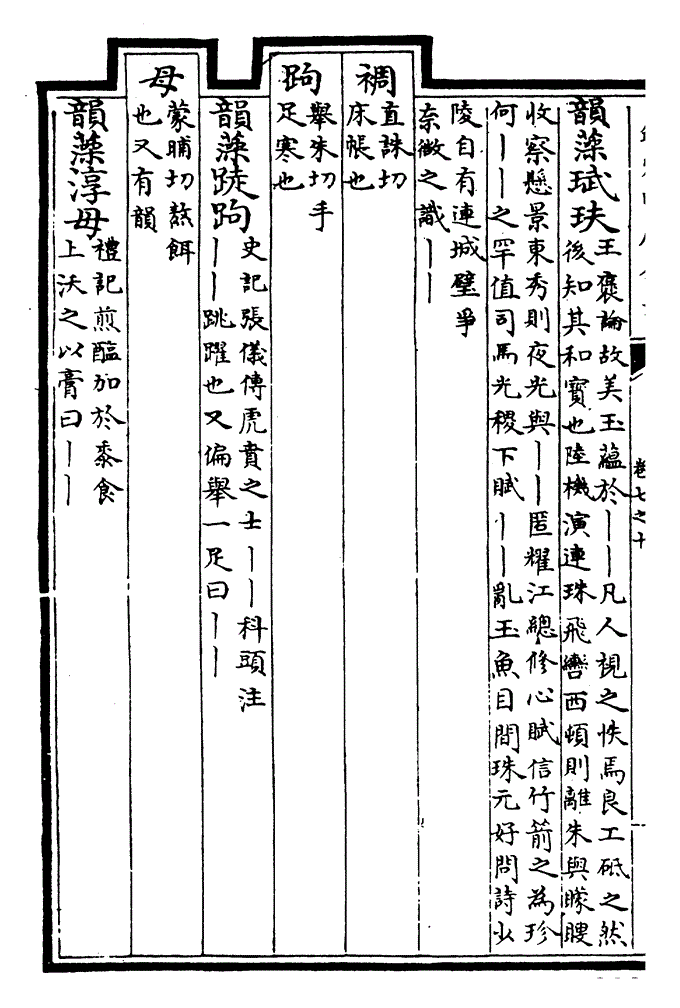 卷七之十
韻藻珷玞
王褒論故美玉蘊於丨丨凡人視之怢焉良工砥之然
後知其和寶也陸機演連珠飛轡西頓則離朱與矇瞍
收察懸景東秀則夜光與丨丨匿耀江總修心賦信竹箭之為珍
何丨丨之罕值司馬光稷下賦丨丨亂玉魚目間珠元好問詩少
陵自有連城璧爭
奈微之識丨丨
裯
直誅切
床帳也
跔
舉朱切手
足寒也
韻藻跿跔
史記張儀傳虎賁之士丨丨科頭注
丨丨跳躍也又偏舉一足曰丨丨
母
蒙晡切熬餌
也又有韻
韻藻淳母
禮記煎醢加於黍食
上沃之以膏曰丨丨